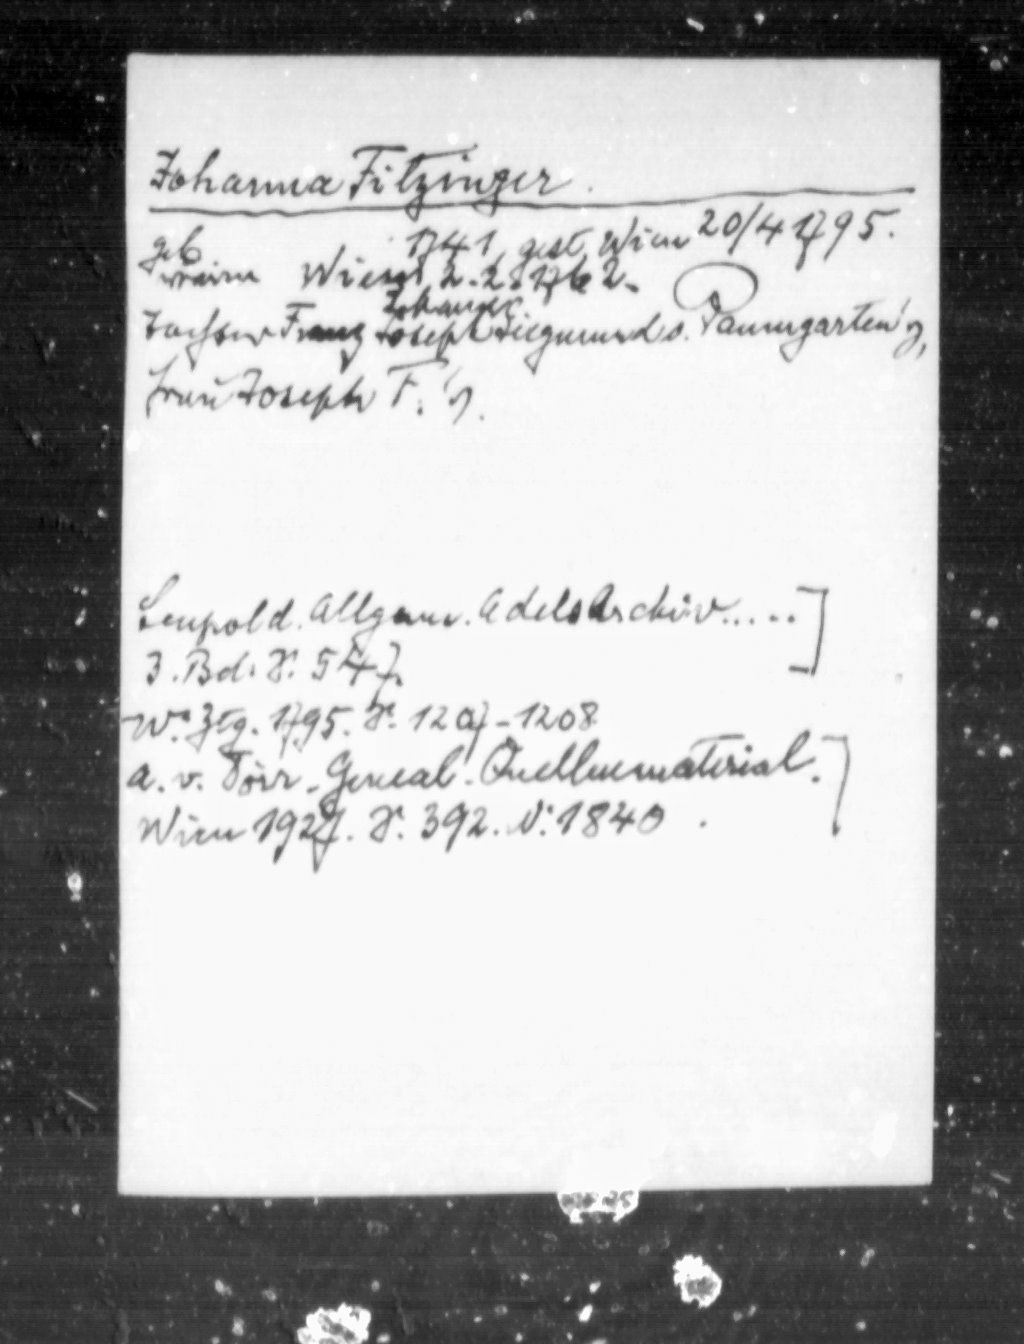 Johanna Fitzinger.
geb 1741, gest. Wien 20/4 1795.
Wien 2.2.1762.
Johanes
Tochter Franz Joseph Siegmund v. Paumgarten's,
Frau Joseph F.'s.
Leupold. Allgem. Adels Archiv.....]
3. Bd. S. 547.
W. Ztg. 1795. S. 1207-1208
A. v. Dörr. Geneal. Quellenmaterial.
Wien 1927. S. 392. N. 1840.